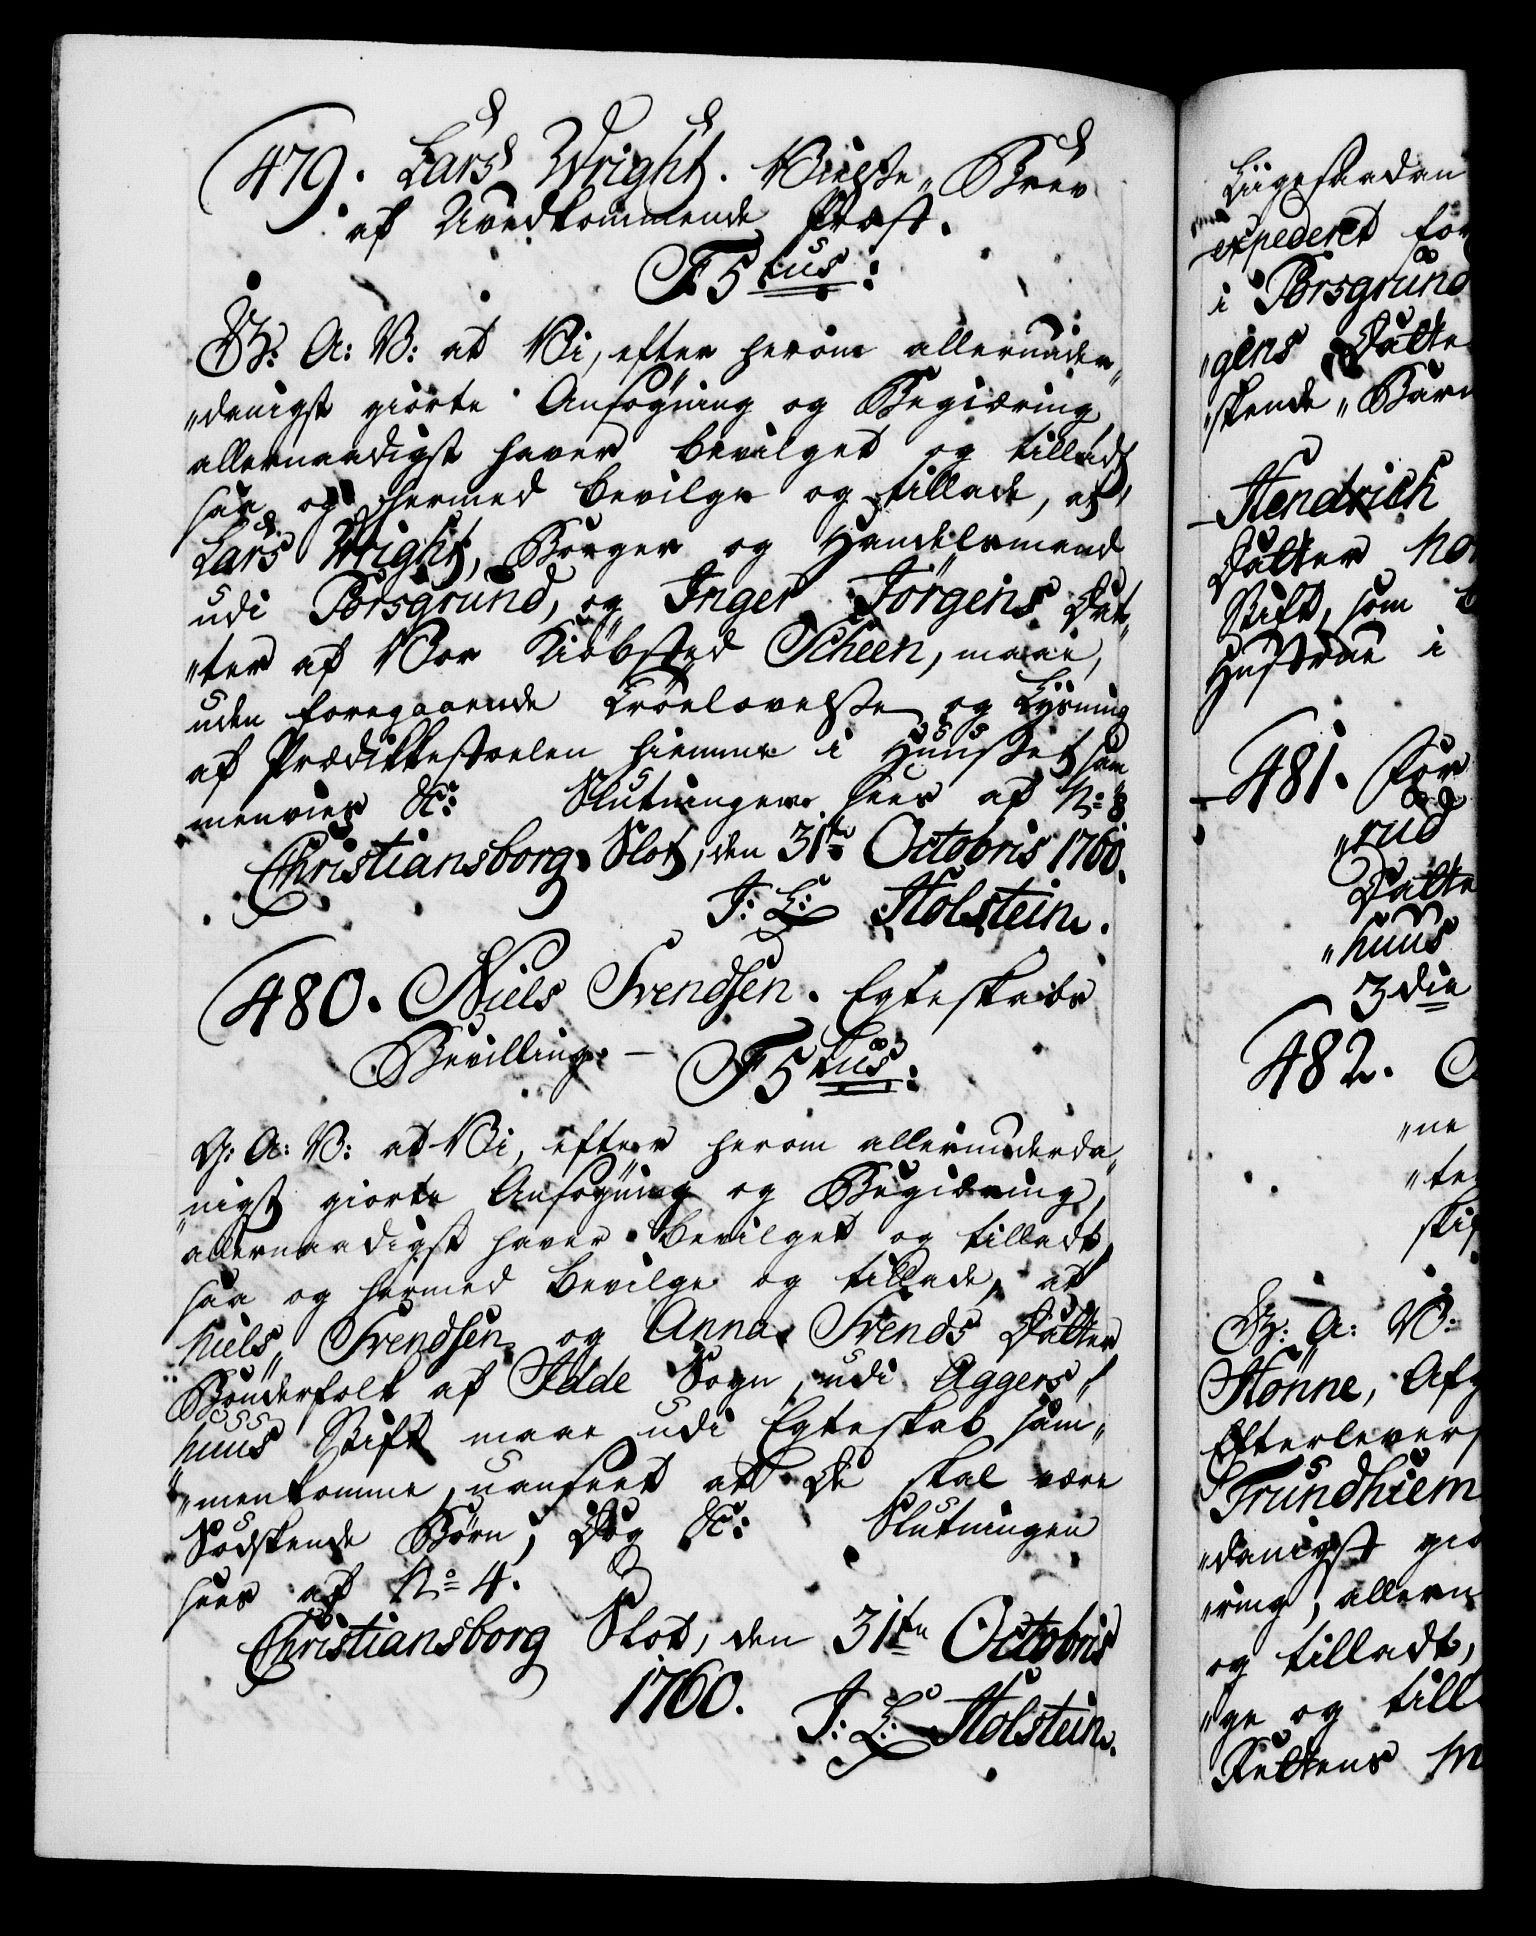 479. Lars Wright. Vielse„Brev
af Uvedkommende Præst.
F5tus:
G: A: V: at Vi, efter herom allerunder„
„danigst giorte Ansøgning og Begiæring
allernaadigst haver bevilget og tilladt
saa og hermed bevilge og tillade, at
Lars Wright, Borger og Handelsmand
udi Porsgrund, og Inger Jørgens Dat„
„ter af Vor Kiøbsted Scheen, maae,
uden foregaaende Troelovelse og Lysning
af Prædikkestoelen hiemme i Huuset sam„
menvies &c: Slutningen sees af No 8.
Christiansborg Slot, den 31te Octobris 1760.
J: L: Holstein.
480. Niels Svendsen. Egteskabs
Bevilling. – F5tus:
G: A: V: at Vi, efter herom allerunderda„
„nigst giorte Ansøgning og Begiæring,
allernaadigst haver bevilget og tilladt,
saa og hermed bevilge og tillade, at
Niels Svendsen og Anna Svends Datter
Bønderfolk af Idde Sogn, udi Aggers„
huus Stift maae udi Egteskab sam„
„menkomme, uanseet at De skal være
Sødskende Børn; Dog &c: Slutningen
sees af No 4.
Christiansborg Slot, den 31te Octobris
1760.
J: L: Holstein.
Liigesaadan
expederet for
i Porsgrund
„gens Datte
„skende„Barn
Hendrich
Datter
Stift, som
Hustrue i
481. For
„rud
Datte
„huus
3die
482.
„ne
G: A: V:
Hønne,
Efterlevers
Trundhiem
„danigst gio
„ring, allern
og tilladt,
„ge og till
Rettens